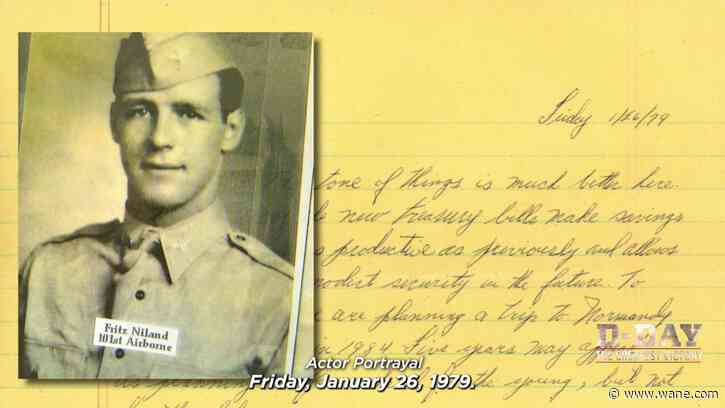 Friday 1/26/79
tone of things is much better here.
new treasury bills make savings
productive as previously and allows
modest security in the future. To
are planning a trip to Normandy
1984 Five years may
the spring, but not
Fritz Niland
101st Airborne
D-DAY
THE GREATEST VICTORY
Actor Portrayal
Friday, January 26, 1979.
© www.wane.com